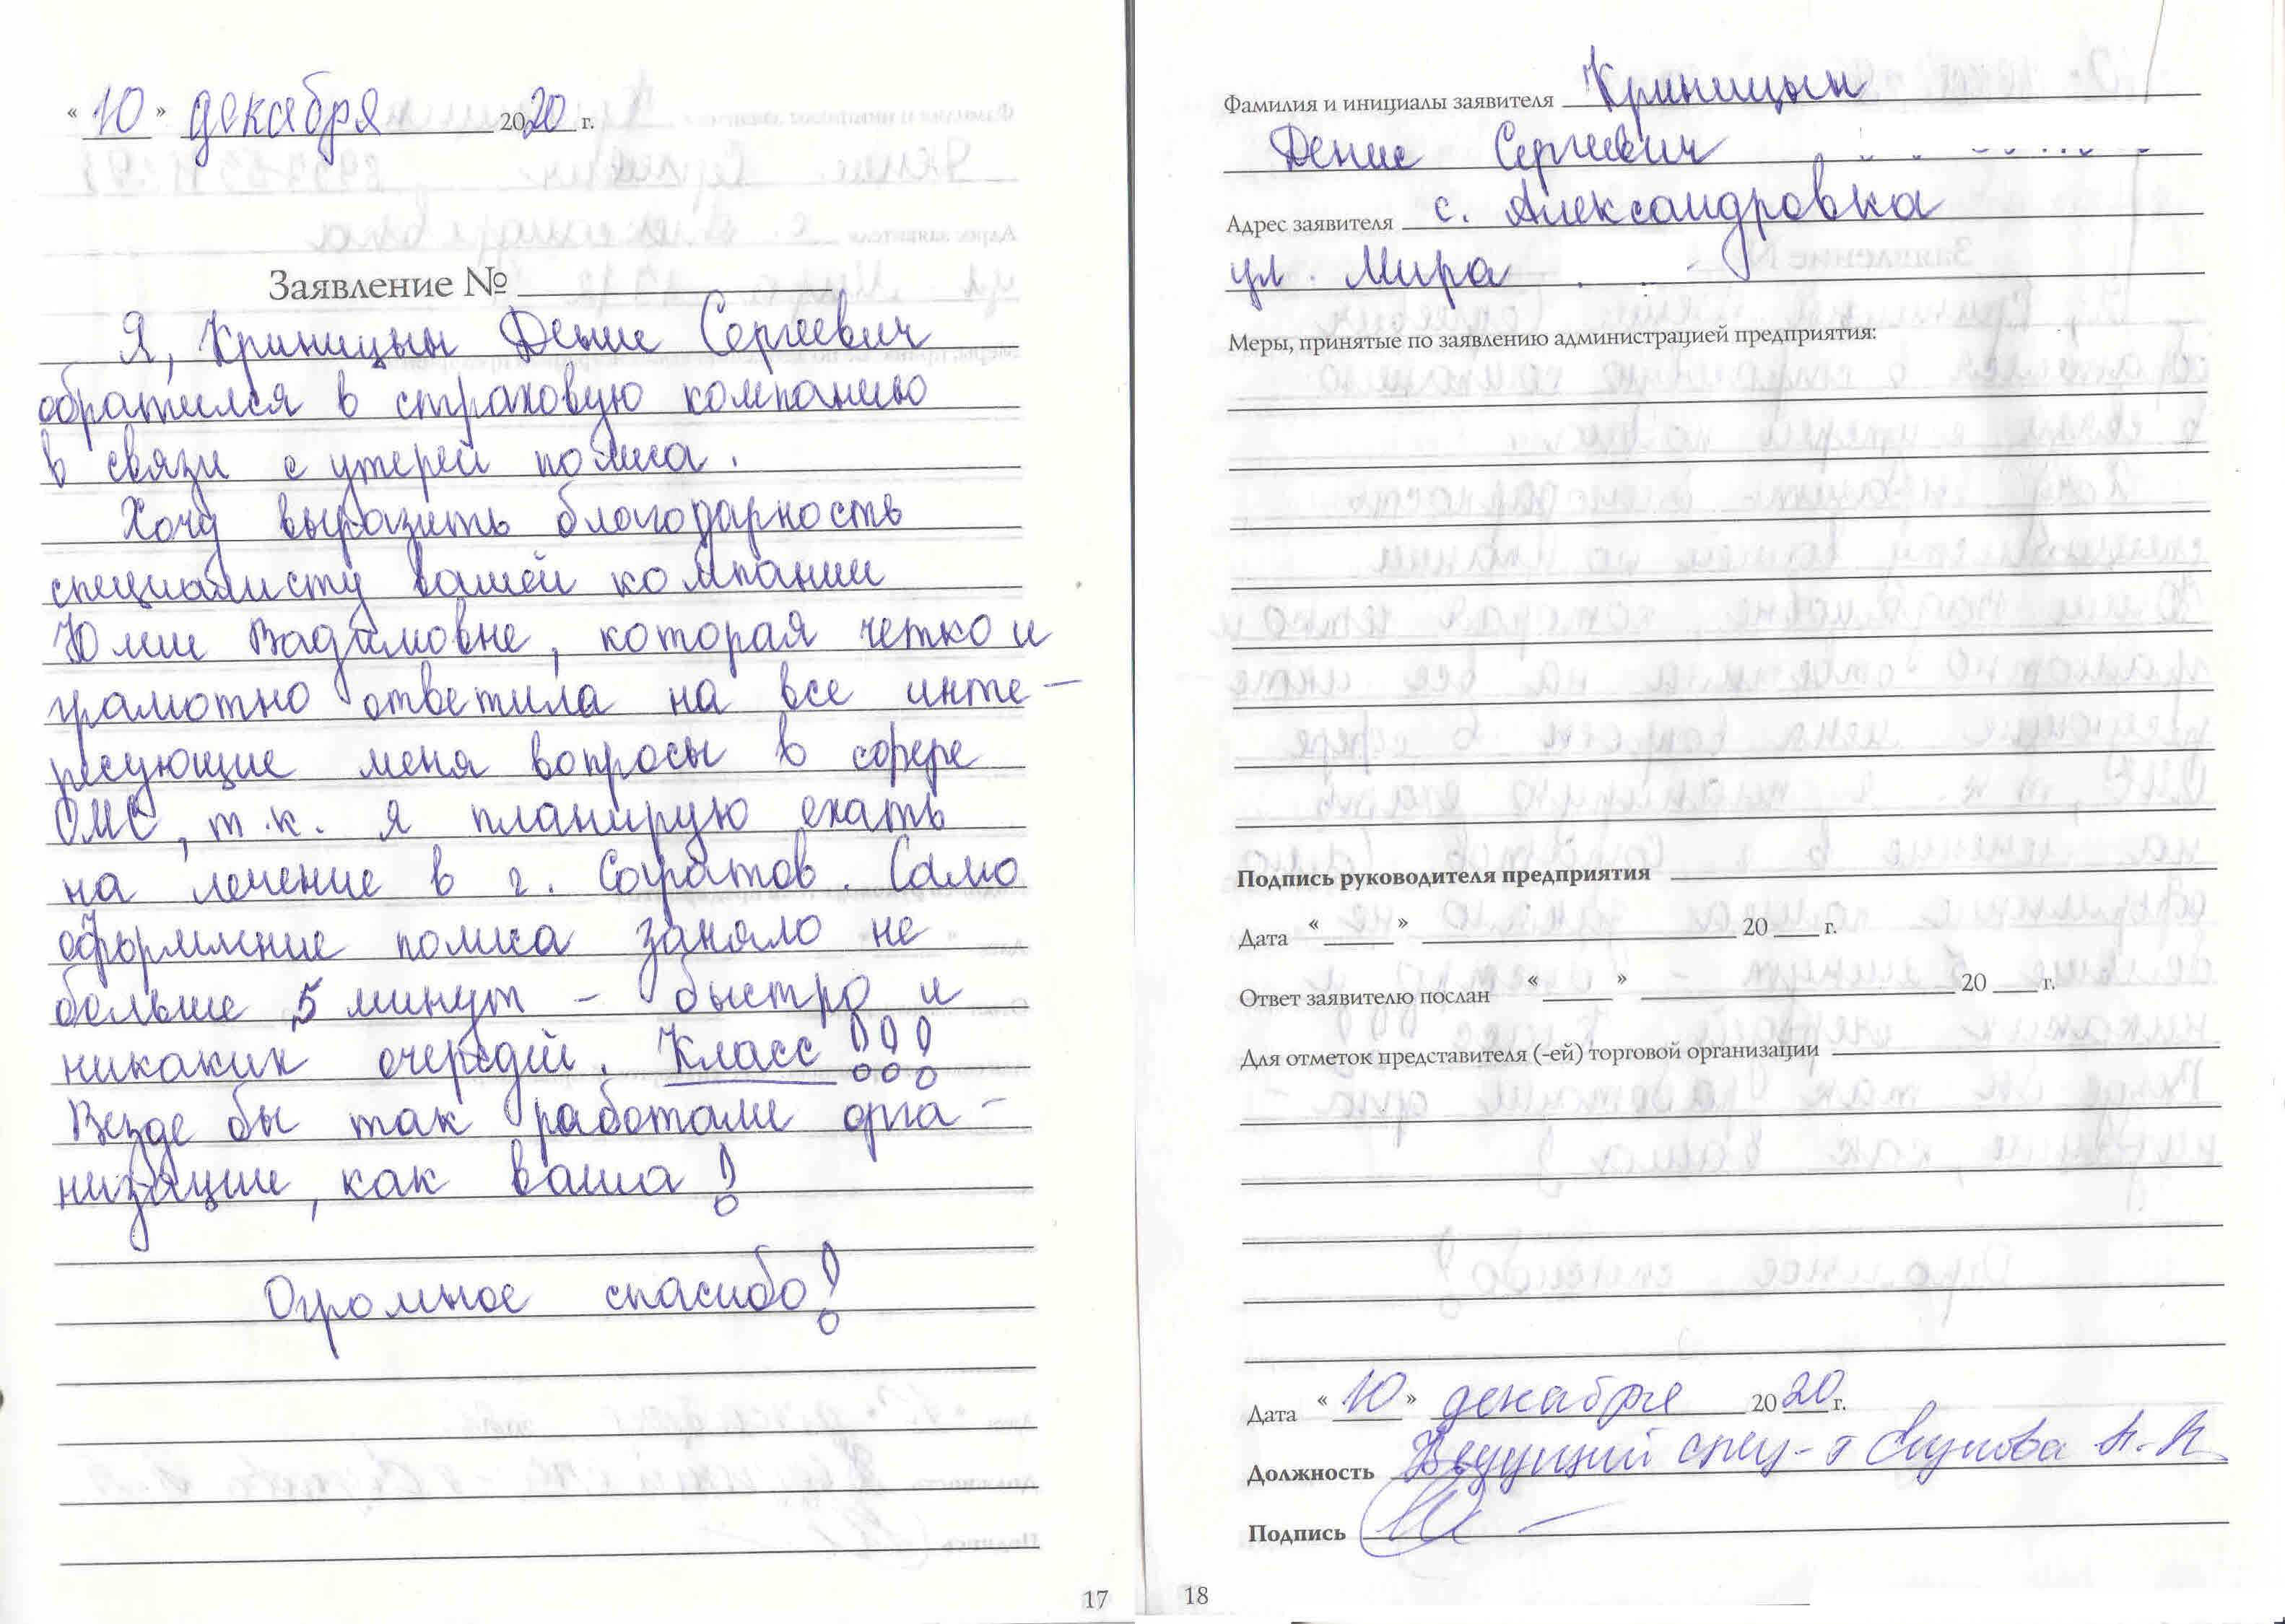 « 10 » декабря 2020 г.
Заявление №
Я, Криницын Денис Сергеевич
обратился в страховую компанию
в связи с утерей полиса.
Хочу выразить благодарность
специалисту вашей компании
Юлии Вадимовне, которая четко и
грамотно ответила на все инте-
ресующие меня вопросы в сфере
ОМС, т.к. я планирую ехать
на лечение в г. Саратов. Само
оформление полиса заняло не
больше 5 минут - быстро и
никаких очередей. Класс!!!
Везде бы так работали орга-
низации, как ваша!
Огромное спасибо!
17
Фамилия и инициалы заявителя Криницын
Денис Сергеевич
Адрес заявителя с. Александровка
ул. Мира
Меры, принятые по заявлению администрацией предприятия:
Подпись руководителя предприятия
Дата « » 20 г.
Ответ заявителю послан « » 20 г.
Для отметок представителя (-ей) торговой организации
Дата « 10 » декабря 2020 г.
Должность Ведущий спец-т
Подпись
18